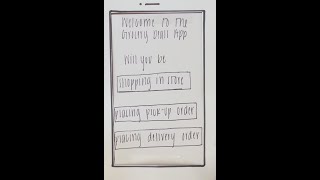 Welcome To The
Grocery Stall App
Will you be
shopping in store
placing pick-up order
placing delivery order